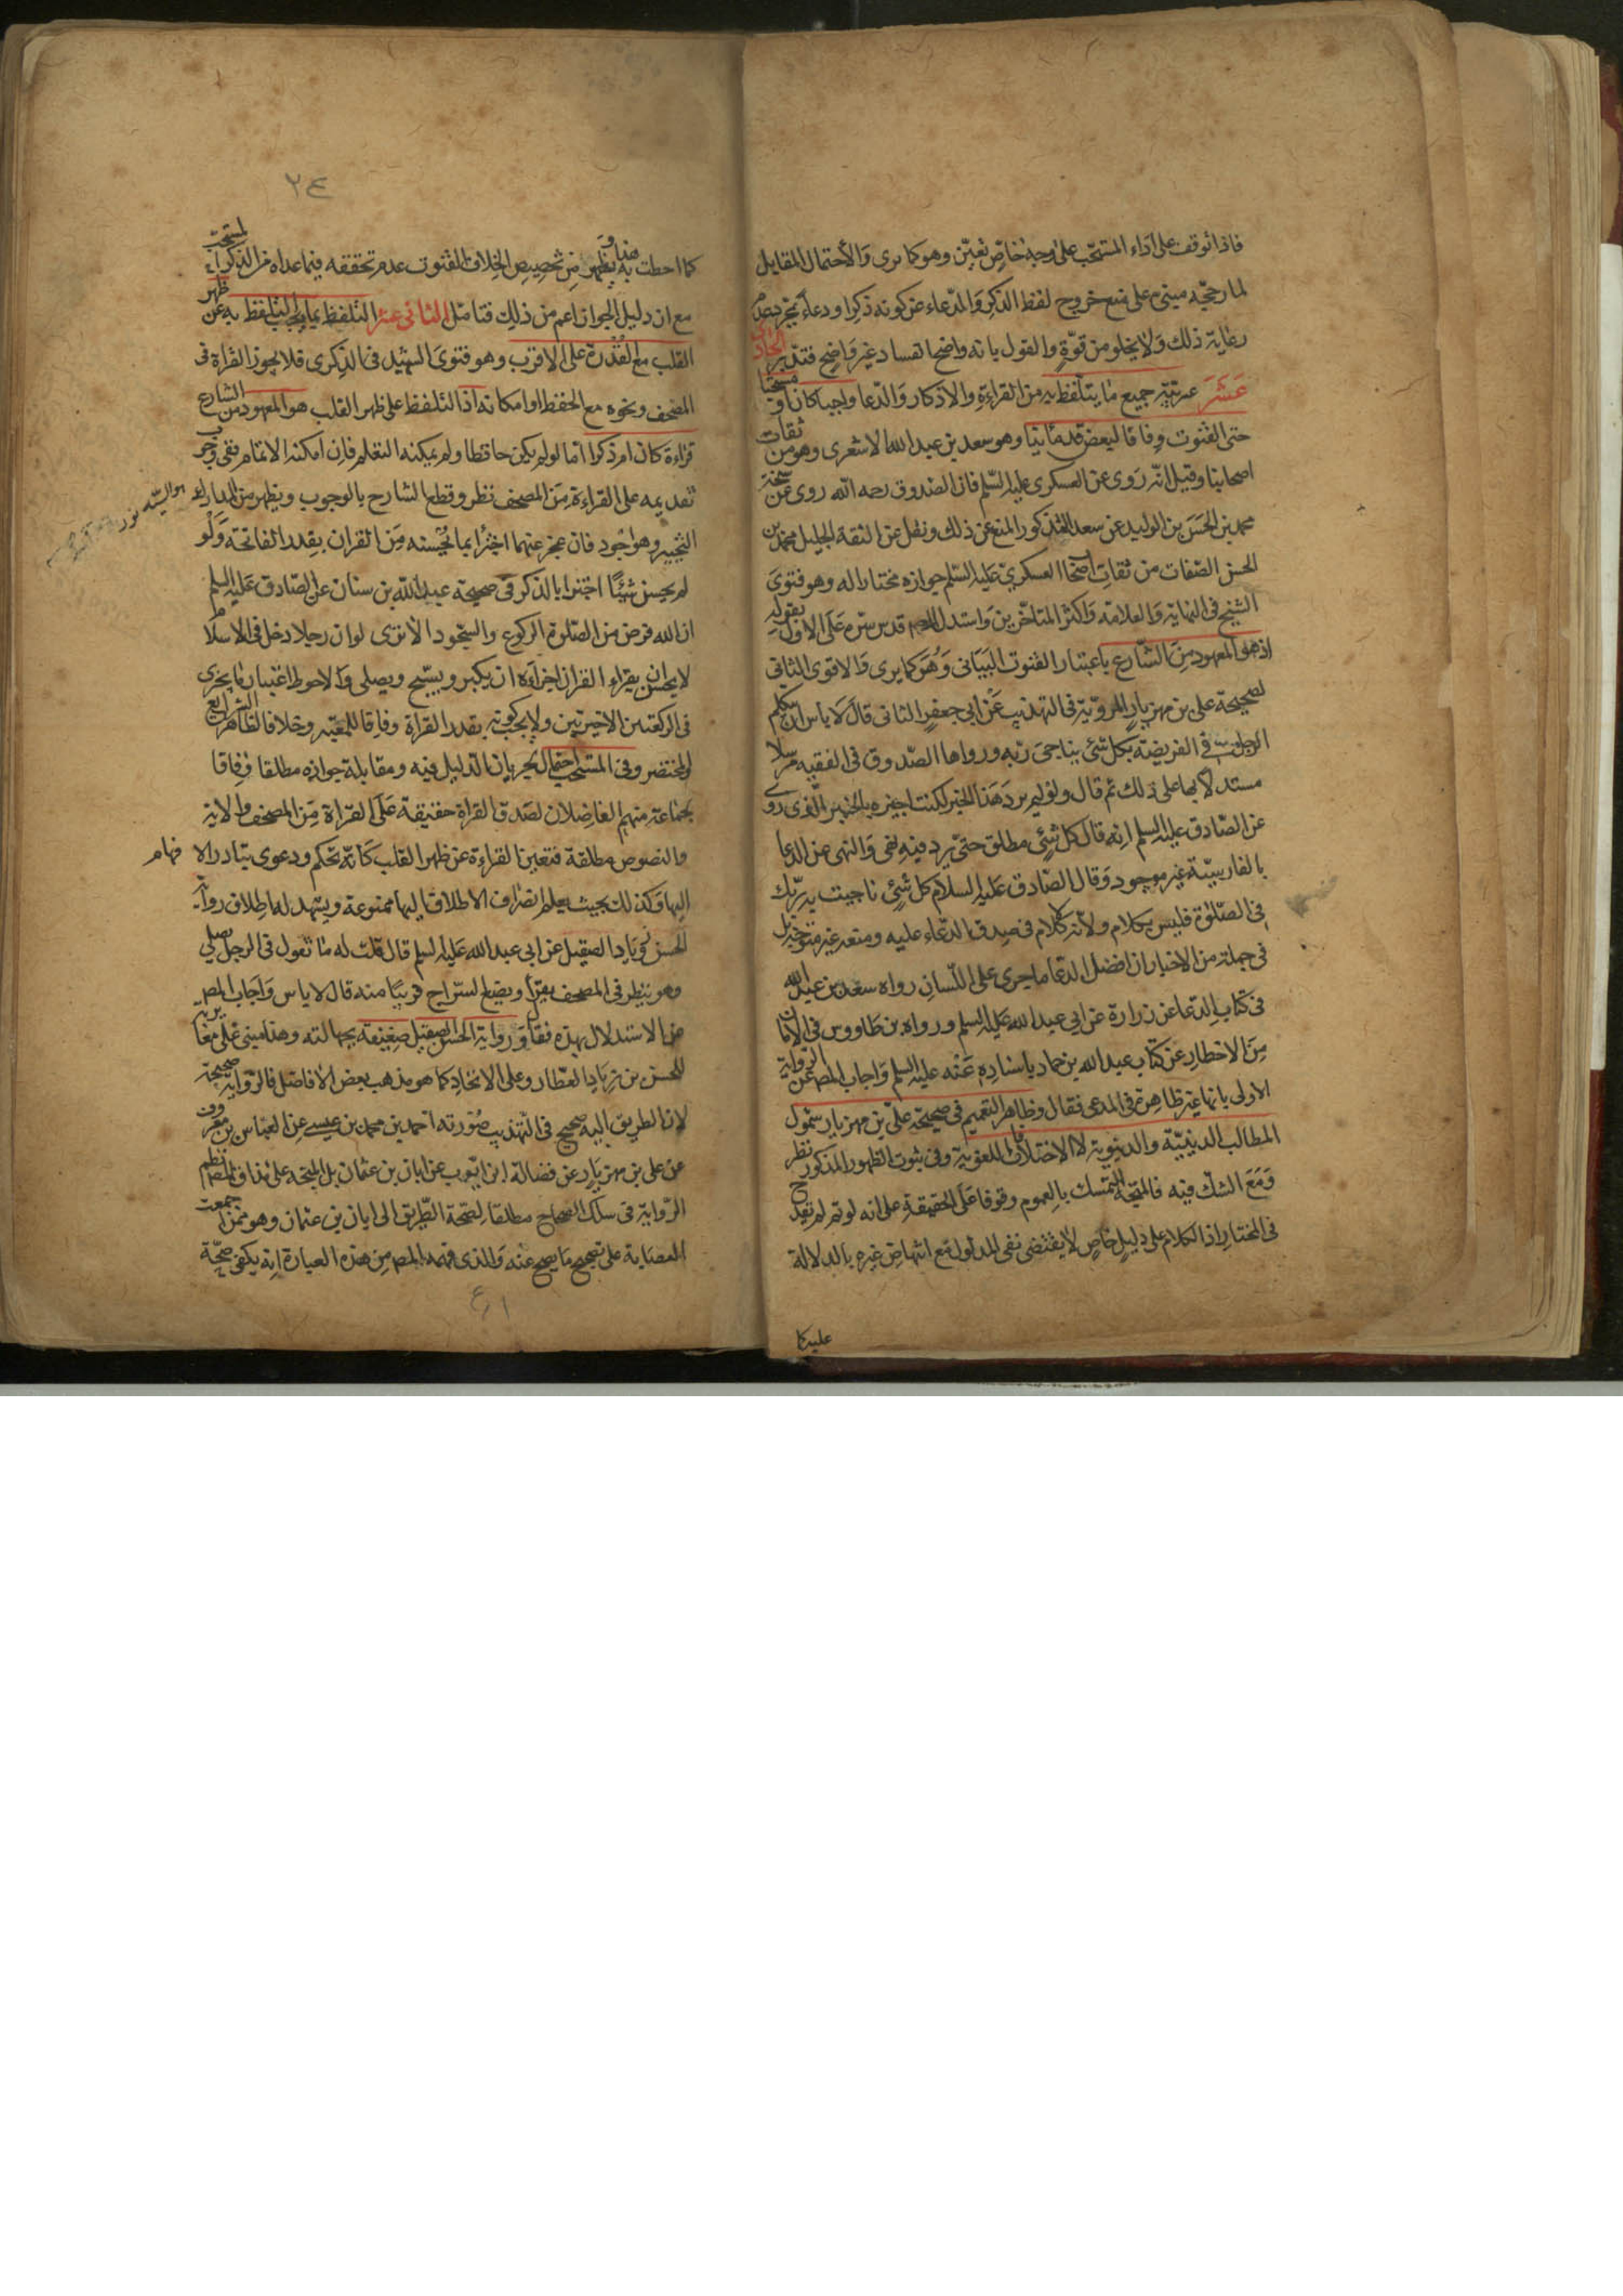 فاذا توقف على اداء المستحب على وجه خاص تعين وهو كما ترى والاحتمال المقابل
لما رجحه مبنى على منع خروج لفظ الذكر والدعاء عن كونه ذكرا ودعاء بمجرد عدم
رعاية ذلك ولا يخلو من قوة والقول بانه واضح الفساد غير واضح فتدبر الحادى
عشر عربية جميع ما يتلفظ به من القراءة والاذكار والدعا واجبا كان او مستحبا
حتى القنوت وفاقا لبعض قدمائنا وهو سعد بن عبد الله الاشعرى وهو من ثقات
اصحابنا وقيل انه روى عن العسكرى عليه السلم فان الصدوق رحمه الله روى عن شيخه
محمد بن الحسن بن الوليد عن سعد المذكور المنع عن ذلك ونقل عن الثقة الجليل محمد بن
الحسن الصفات من ثقات اصحاب العسكرى عليه السلم جوازه مختارا له وهو فتوى
الشيخ فى النهاية والعلامة واكثر المتاخرين واستدل المصـ قدس سره على الاول بقوله
اذ هو المعهود من الشارع باعتبار القنوت البيانى وهو كما يرى والاقوى الثانى
لصحيحة على بن مهزيار المروية فى التهذيب عن ابى جعفر الثانى قال لا باس ان يتكلم
الرجل فى الفريضة بكل شئ يناجى ربه ورواها الصدوق فى الفقيه مرسلا
مستدلا بها على ذلك ثم قال ولو لم يرد هذا الخبر لكنت اجيزه بالخبر الذى روى
عن الصادق عليه السلم انه قال كل شئ مطلق حتى يرد فيه نهى والنهى عن الدعا
بالفارسية غير موجود وقال الصادق عليه السلام كل شئ ناجيت به ربك
فى الصلوة فليس بكلام ولانه كلام فصدق الدعاء عليه ومنعه غير متوجه بل
فى جملة من الاخبار ان افضل الدعا ما جرى على اللسان رواه سعد بن عبد الله
فى كتاب الدعا عن زرارة عن ابى عبد الله عليه السلم ورواه بن طاووس فى الامان
من الاخطار عن كتاب عبد الله بن حماد باسناده عنه عليه السلم واجاب المصـ عن الرواية
الاولى بانها غير ظاهرة فى المدعى فقال وظاهر التعميم فى صحيحة على بن مهزيار شمول
المطالب الدينية والدنيوية لا الاختلافات اللغوية وفى ثبوت الظهور المذكور نظر
ومع الشك فيه فالمتجه التمسك بالعموم وقوفا على الحقيقة على انه لو تم لم يقدح
فى المختار اذ الكلام على دليل خاص لا يقتضى نفى المدلول مع انتهاض غيره بالدلالة
عليه كما
٢٤
كما احطت به هذا ويظهر من تخصيص الخلاف بالقنوت عدم تحققه فيما عداه من الذكر المستحب
مع ان دليل الجواز اعم من ذلك فتامل الثانى عشر التلفظ بما يجب التلفظ به عن ظهر
القلب مع القدرة على الاقرب وهو فتوى الشهيد فى الذكرى فلا يجوز القراءة فى
المصحف ونحوه مع الحفظ او امكانه اذ التلفظ على ظهر القلب هو المعهود من الشارع
قراءة كان ام ذكرا اما لو لم يكن حافظا ولم يمكنه التعلم فان امكنه الائتمام ففى وجوب
تقديمه على القراءة من المصحف نظر وقطع الشارح بالوجوب ويظهر من المدارك
هو السيد نور
التخيير وهو اجود فان عجز عنهما اجتزا بما يحسنه من القران بقدر الفاتحة ولو
لم يحسن شيئا اجتزا بالذكر فى صحيحة عبد الله بن سنان عن الصادق عليه السلم
ان الله فرض من الصلوة الركوع والسجود الا ترى لو ان رجلا دخل فى الاسلام
لا يحسن ان يقراء القران اجزاءه ان يكبر ويسبح ويصلى والاحوط اعتبار ما يجزى
فى الركعتين الاخيرتين ولا يجب كونه بقدر القراة وفاقا للمعتبر وخلافا لظاهر الشرايع
والمختصر وفى المستحب احتمال لجريان الدليل فيه ومقابلة جوازه مطلقا وفاقا
لجماعة منهم الفاضلان لصدق القراة حقيقة على القراة من المصحف والاية
والنصوص مطلقة فتعين القراءة عن ظهر القلب كانه تحكم ودعوى تبادر الا فهام
اليها وكذلك بحيث يعلم انصراف الاطلاق اليها ممنوعة ويشهد له اطلاق رواية
الحسن بن زياد الصيقل عن ابى عبد الله عليه السلم قال قلت له ما تقول فى الرجل يصلى
وهو ينظر فى المصحف يقرا ويضع السراج قريبا منه قال لا باس واجاب المصـ
عن الاستدلال بهذه فقال ورواية الحسن الصيقل ضعيفة بجهالته وهذا مبنى على مغايرته
للحسن بن زياد العطار وعلى الاتحاد كما هو مذهب بعض الافاضل فالرواية صحيحة
لان الطريق اليه صحيح فى التهذيب صورته احمد بن محمد بن عيسى عن العباس بن معروف
عن على بن مهزيار عن فضالة ابن ايوب عن ابان بن عثمان بل المتجه على مذاق المصـ نظم
الرواية فى سلك الصحاح مطلقا لصحة الطريق الى ابان بن عثمان وهو ممن اجمعت
العصابة على تصحيح ما يصح عنه والذى فهمه المصـ من هذه العبارة انه يكفى صحة